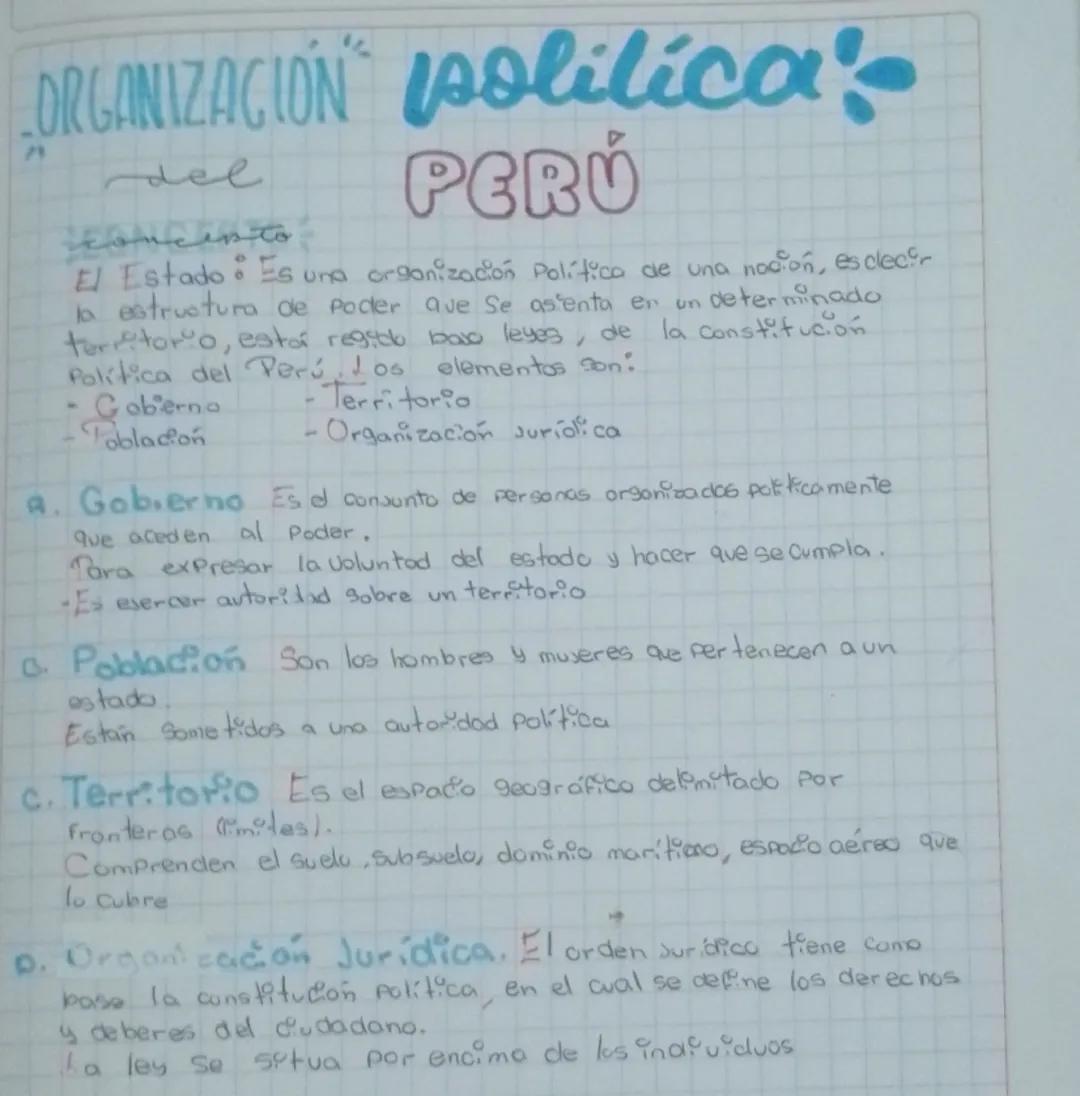 ORGANIZACIÓN política
del PERÚ
concepto
El Estado: Es una organización Política de una nación, es decir
la estructura de Poder que Se asienta en un determinado
territorio, está regido bajo leyes, de la constitución
Política del Perú. Los elementos son:
- Gobierno - Territorio
- Población - Organización Jurídica
A. Gobierno Es el conjunto de personas organizadas políticamente
que acceden al Poder.
Para expresar la voluntad del estado y hacer que se cumpla.
- Es ejercer autoridad sobre un territorio
B. Población Son los hombres y mujeres que pertenecen a un
estado.
Están Sometidos a una autoridad política
C. Territorio Es el espacio geográfico delimitado por
fronteras (límites).
Comprenden el suelo, subsuelo, dominio marítimo, espacio aéreo que
lo cubre
D. Organización Jurídica. El orden Jurídico tiene como
base la constitución política, en el cual se define los derechos
y deberes del ciudadano.
La ley se sitúa por encima de los individuos